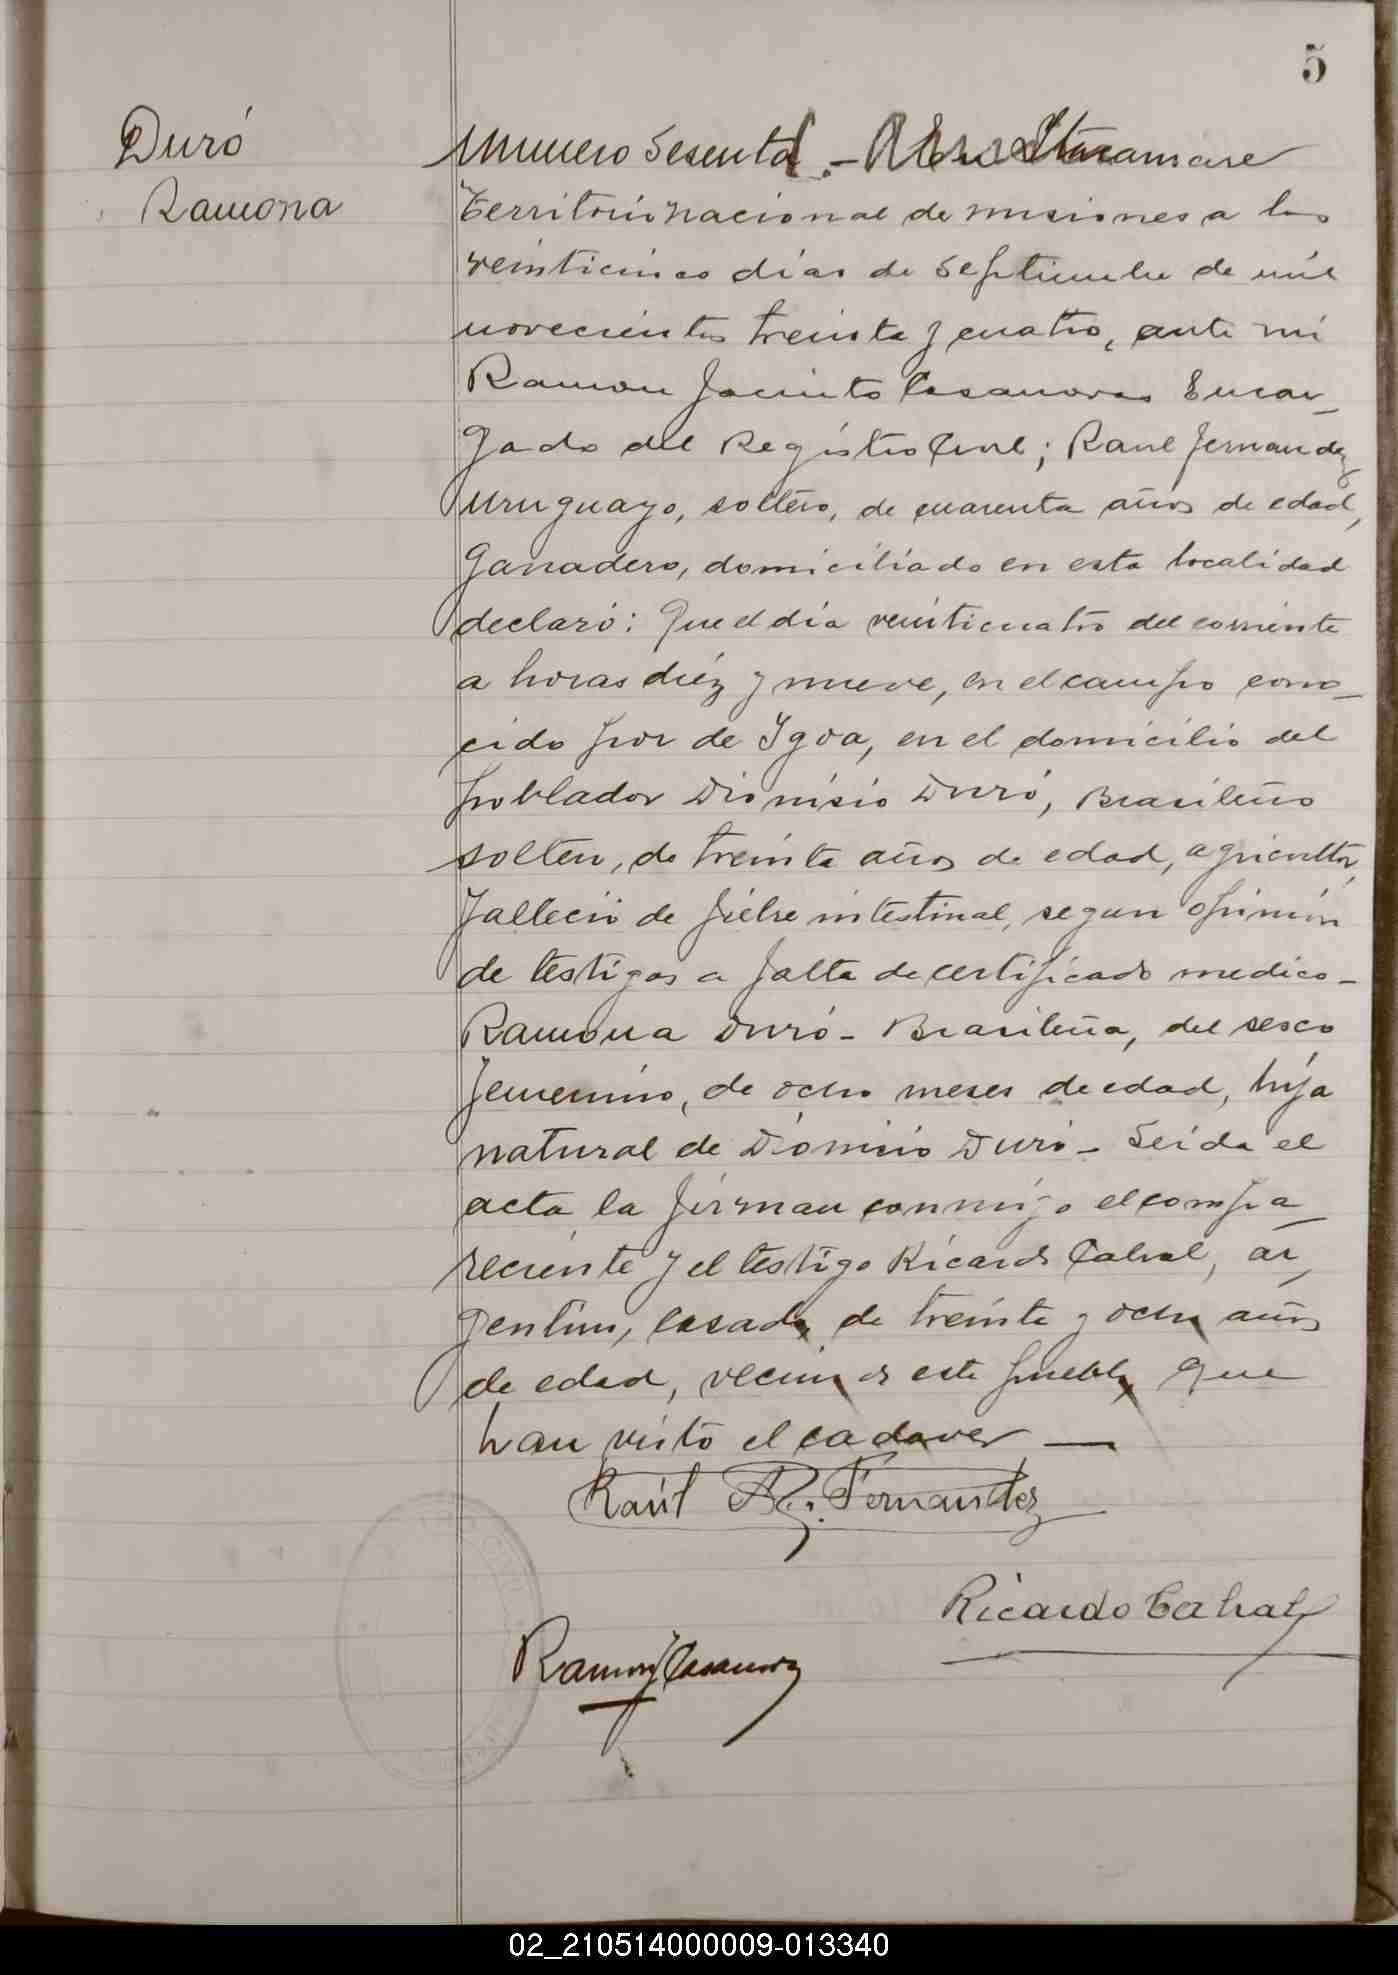 5
Duró
Ramona
Numero Sesenta.-
Territorio nacional de misiones a los
veinticinco dias de Septiembre de mil
novecientos treinta y cuatro, ante mi
Ramon Jacinto Casanova Encar-
gado del Registro Civil; Raul Fernandez
Uruguayo, soltero, de cuarenta años de edad,
Ganadero, domiciliado en esta localidad
declaró: Que el dia veinticuatro del corriente
a horas diez y nueve, en el campo cono-
cido por de Igoa, en el domicilio del
poblador Dionisio Duró, Brasileño
soltero, de treinta años de edad, agricultor,
falleció de fiebre intestinal, segun opinión
de testigos a falta de certificado medico-
Ramona Duró- Brasileña, del sexo
femenino, de ocho meses de edad, hija
natural de Dionisio Duró- Leida el
acta la firman conmigo el compa-
reciente y el testigo Ricardo Cabral, ar-
gentino, casado, de treinta y ocho años
de edad, vecino de este pueblo que
han visto el cadaver —
Raúl R. Fernandez
Ricardo Cabral
Ramon J Casanova
02_210514000009-013340